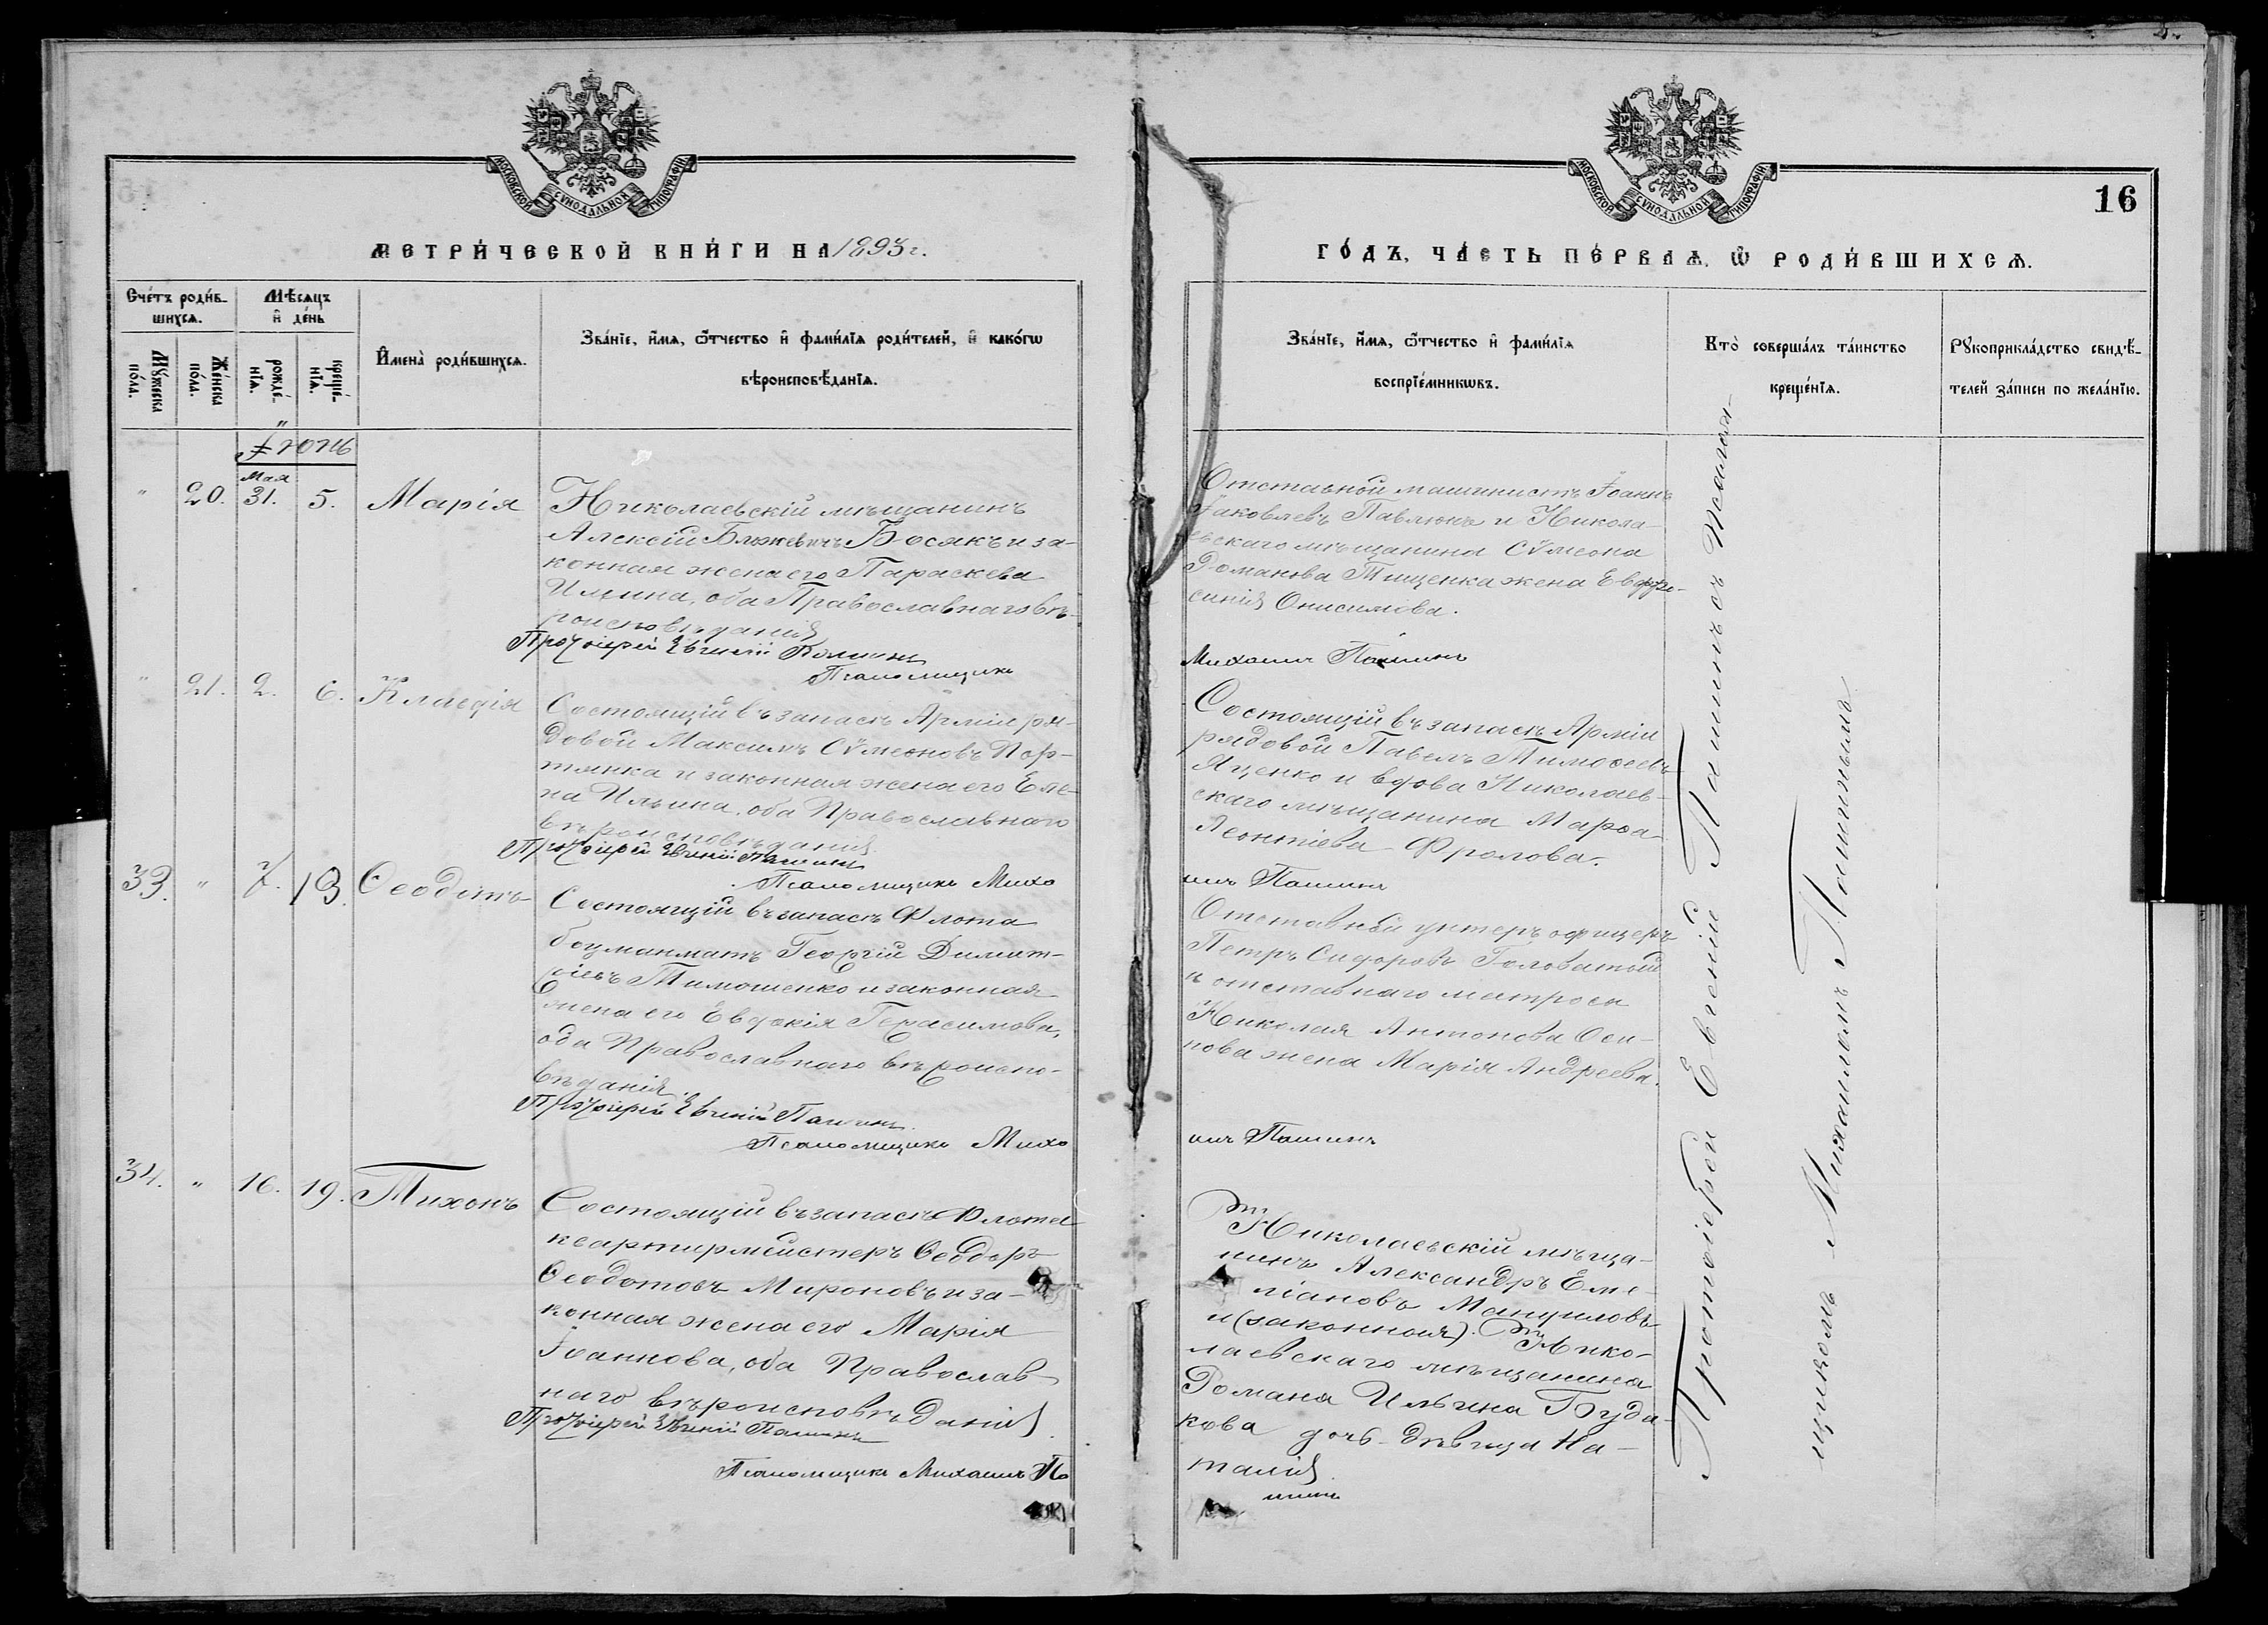 МОСКОВСКОЙ СѴНОДАЛЬНОЙ ТИПОГРАФІИ
МЕТРИ́ЧЕСКОЙ КНИ́ГИ НА 1893 г.
Сче́тъ роди́в-
шихсѧ.
Мꙋ́жеска
по́ла.
Же́нска
по́ла.
Мѣ́сѧцъ
и҆ де́нь
рожде́-
нїѧ.
креще́-
нїѧ.
И҆мена̀ роди́вшихсѧ.
Зва́нїе, и҆́мѧ, ѻ҆́тчество и҆ фами́лїѧ роди́телей, и҆ како́гѡ
вѣроисповѣ́данїѧ.
Іюнь
" 20. Мая 31. 5. Марія
Николаевскій мѣщанинъ
Алексій Босякъ и за-
конная жена его Параскева
Ильина, оба Православнаго вѣ-
роисповѣданія
Протоіерей Евгеній Пашинъ
Псаломщикъ
" 21. 2. 6. Клавдія
Состоящій въ запасѣ Арміи ря-
довой Максимъ Сѵмеоновъ Пор-
тянка и законная жена его Еле-
на Ильина, оба Православнаго
вѣроисповѣданія
Протоіерей Евгеній Пашинъ
Псаломщикъ Миха
33. " 7. 13. Ѳеодотъ
Состоящій въ запасѣ Флота
боцманматъ Георгій Димит-
ріевъ Тимошенко и законная
жена его Евдокія Герасимова,
оба Православнаго вѣроиспо-
вѣданія
Протоіерей Евгеній Пашинъ
Псаломщикъ Миха
34. " 16. 19. Тихонъ
Состоящій въ запасѣ Флота
квартирмейстеръ Ѳеодоръ
Ѳеодотовъ Мироновъ и за-
конная жена его Марія
Іоаннова, оба Православ-
наго вѣроисповѣданія
Протоіерей Евгеній Пашинъ
Псаломщикъ Михаилъ Па
МОСКОВСКОЙ СѴНОДАЛЬНОЙ ТИПОГРАФІИ
16
ГО́ДЪ, ЧА́СТЬ ПЕ́РВАѦ, Ѡ҆ РОДИ́ВШИХСѦ.
Зва́нїе, и҆́мѧ, ѻ҆́тчество и҆ фами́лїѧ
воспрїе́мникѡвъ.
Кто̀ соверша́лъ та́инство
креще́нїѧ.
Рꙋкоприкла́дство свидѣ́-
телей за́писи по жела́нїю.
Отставной машинистъ Іоаннъ
Іаковлевъ Павлюкъ и Никола-
евскаго мѣщанина Сѵмеона
Романова Тищенка жена Евфро-
синія Онисимова.
Михаилъ Пашинъ
Состоящій въ запасѣ Арміи
рядовой Павелъ Тимоѳеевъ
Яценко и вдова Николаев-
скаго мѣщанина Марѳа
Леонтіева Фролова.
илъ Пашинъ
Отставной унтеръ офицеръ
Петръ Сидоровъ Головатый
и отставнаго матроса
Николая Антонова Оси-
пова жена Марія Андреева.
илъ Пашинъ
Николаевскій мѣща-
нинъ Александръ Еме-
ліановъ Мануиловъ
и (законная). Нико-
лаевскаго мѣщанина
Романа Ильина Буда-
кова дочь дѣвица На-
талія
шинъ
Протоіерей Евгеній Пашинъ съ Псалом-
щикомъ Михаиломъ Пашинымъ